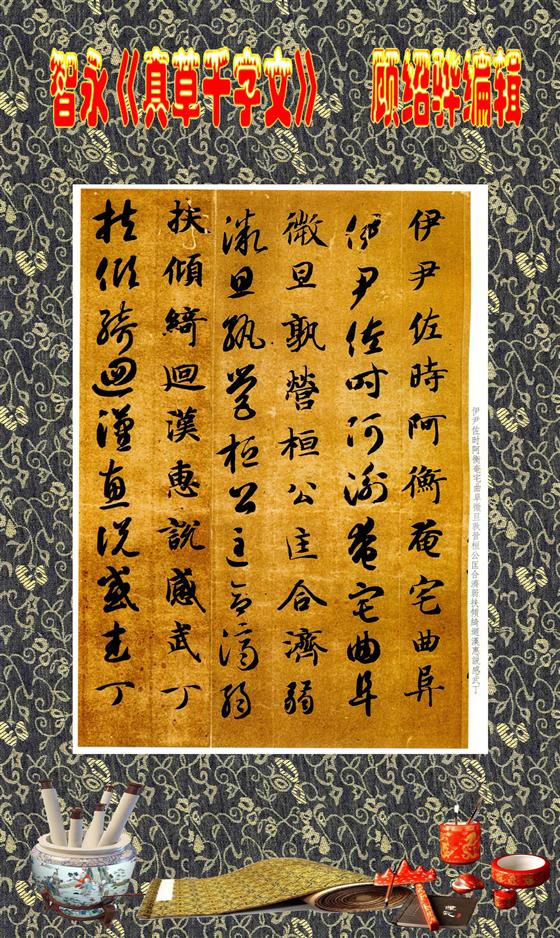 智永《真草千字文》 顾绍骅编辑
伊尹佐時阿衡奄宅曲阜
伊尹佐時阿衡奄宅曲阜
微旦孰營桓公匡合濟弱
微旦孰營桓公匡合濟弱
扶傾綺迴漢惠說感武丁
扶傾綺迴漢惠說感武丁
伊尹佐时阿衡奄宅曲阜微旦孰营桓公匡合济弱扶倾绮迴漢惠説感武丁